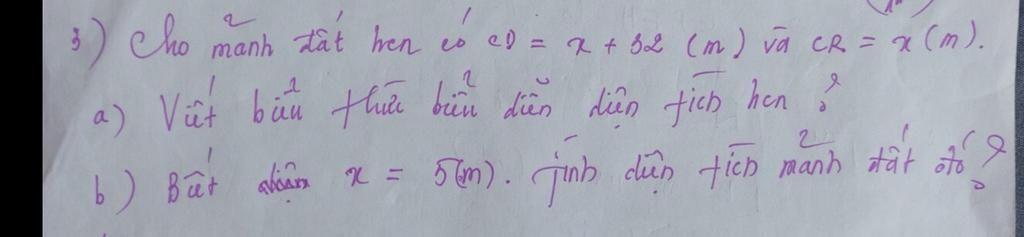 3) Cho mảnh đất hcn có CD = x + 32 (m) và CR = x (m).
a) Viết biểu thức biểu diễn diện tích hcn ?
b) Biết x = 5(m). Tính diện tích mảnh đất đó ?